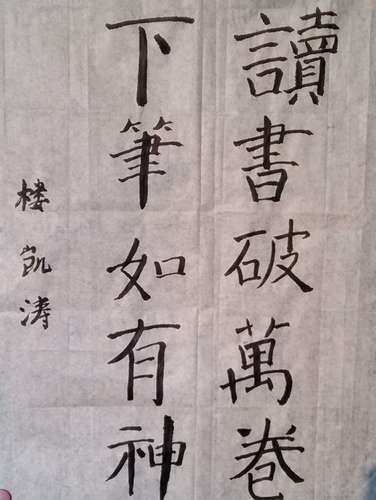 讀書破萬卷
下筆如有神
楼凯涛